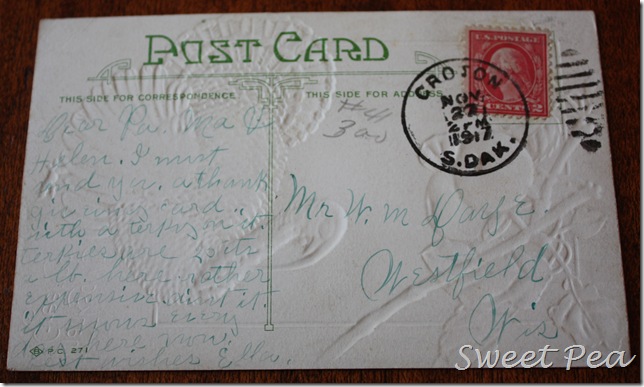 POST CARD
THIS SIDE FOR CORRESPONDENCE
THIS SIDE FOR ADDRESS
U.S. POSTAGE
CENTS 2
GROTON
NOV.
27
2 PM
1917
S. DAK.
#41
300
Dear Pa. Ma &
Helen. I must
send you a thank
giving card
with a terky on it.
terkies are
a lb. here rather
expensive aint it.
it snows every
here now.
Best wishes Ella.
P.C. 271
Mr W. m
Westfield
Wis
Sweet Pea